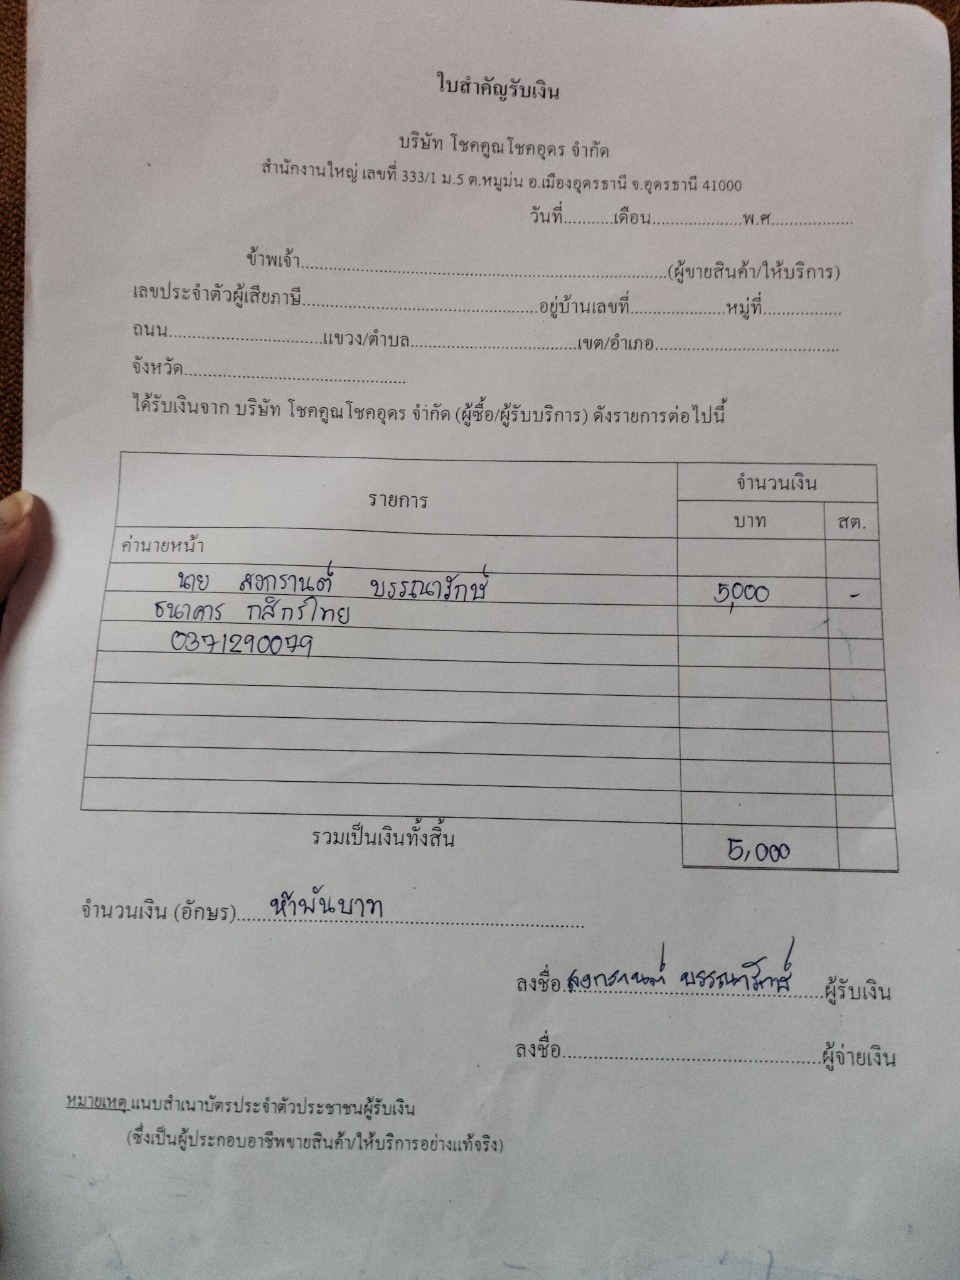 ใบสำคัญรับเงิน
บริษัท โชคคูณโชคอุดร จำกัด
สำนักงานใหญ่ เลขที่ 333/1 ม.5 ต.หมูม่น อ.เมืองอุดรธานี จ.อุดรธานี 41000
วันที่...........เดือน....................พ.ศ..................
ข้าพเจ้า................................................................................(ผู้ขายสินค้า/ให้บริการ)
เลขประจำตัวผู้เสียภาษี...................................................อยู่บ้านเลขที่.....................หมู่ที่.................
ถนน.................................แขวง/ตำบล....................................เขต/อำเภอ.......................................
จังหวัด................................................
ได้รับเงินจาก บริษัท โชคคูณโชคอุดร จำกัด (ผู้ซื้อ/ผู้รับบริการ) ดังรายการต่อไปนี้
รายการ จำนวนเงิน
บาท สต.
ค่านายหน้า
นาย สงกรานต์ บรรณารักษ์ 5,000 -
ธนาคาร กสิกรไทย
0371290079
รวมเป็นเงินทั้งสิ้น 5,000
จำนวนเงิน (อักษร)......ห้าพันบาท..........................................
ลงชื่อ.สงกรานต์ บรรณารักษ์......ผู้รับเงิน
ลงชื่อ........................................................ผู้จ่ายเงิน
หมายเหตุ แนบสำเนาบัตรประจำตัวประชาชนผู้รับเงิน
(ซึ่งเป็นผู้ประกอบอาชีพขายสินค้า/ให้บริการอย่างแท้จริง)